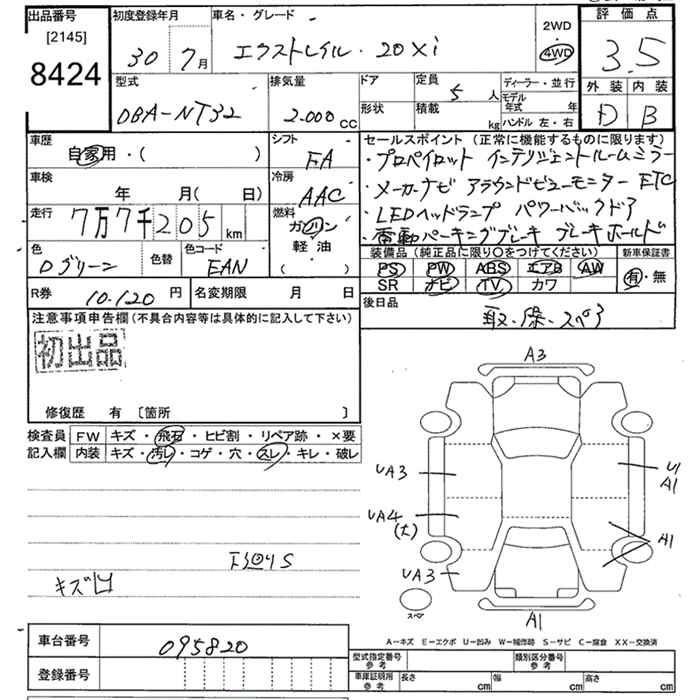 出品番号
[2145]
8424
初度登録年月
30年 7月
車名・グレード
エクストレイル・20Xi
2WD
4WD
評価点
3.5
外装 内装
D B
型式
DBA-NT32
排気量
2.000 cc
ドア
形状
定員
5 人
積載
kg
ディーラー・並行
モデル年式 年
ハンドル 左・右
車歴
自家用・( )
シフト
FA
車検
年 月( 日)
冷房
AAC
走行
7万7千205 km
燃料
ガソリン
軽油
( )
色
Dグリーン
色替
色コード
EAN
R券
10.120 円
名変期限 月 日
セールスポイント (正常に機能するものに限ります)
・プロパイロット インテリジェントルームミラー
・メーカーナビ アラウンドビューモニター ETC
・LEDヘッドランプ パワーバックドア
・電動パーキングブレーキ ブレーキホールド
装備品 (純正品に限り○をつけてください)
新車保証書
PS PW ABS エアB AW
有・無
SR ナビ TV カワ
後日品
取・保・スペア
注意事項申告欄(不具合内容等は具体的に記入して下さい)
初出品
修復歴 有 [箇所 ]
検査員
記入欄
FW キズ・飛石・ヒビ割・リペア跡・×要
内装 キズ・汚レ・コゲ・穴・スレ・キレ・破レ
下廻りS
キズ凹
A3
UA3
U
A1
UA4
(大)
A1
UA3
スペア
A1
A-キズ E-エクボ U-凹み W-補修跡 S-サビ C-腐食 XX-交換済
車台番号
095820
登録番号
型式指定番号
参考
類別区分番号
参考
車庫証明用
参考
長さ cm
幅 cm
高さ cm